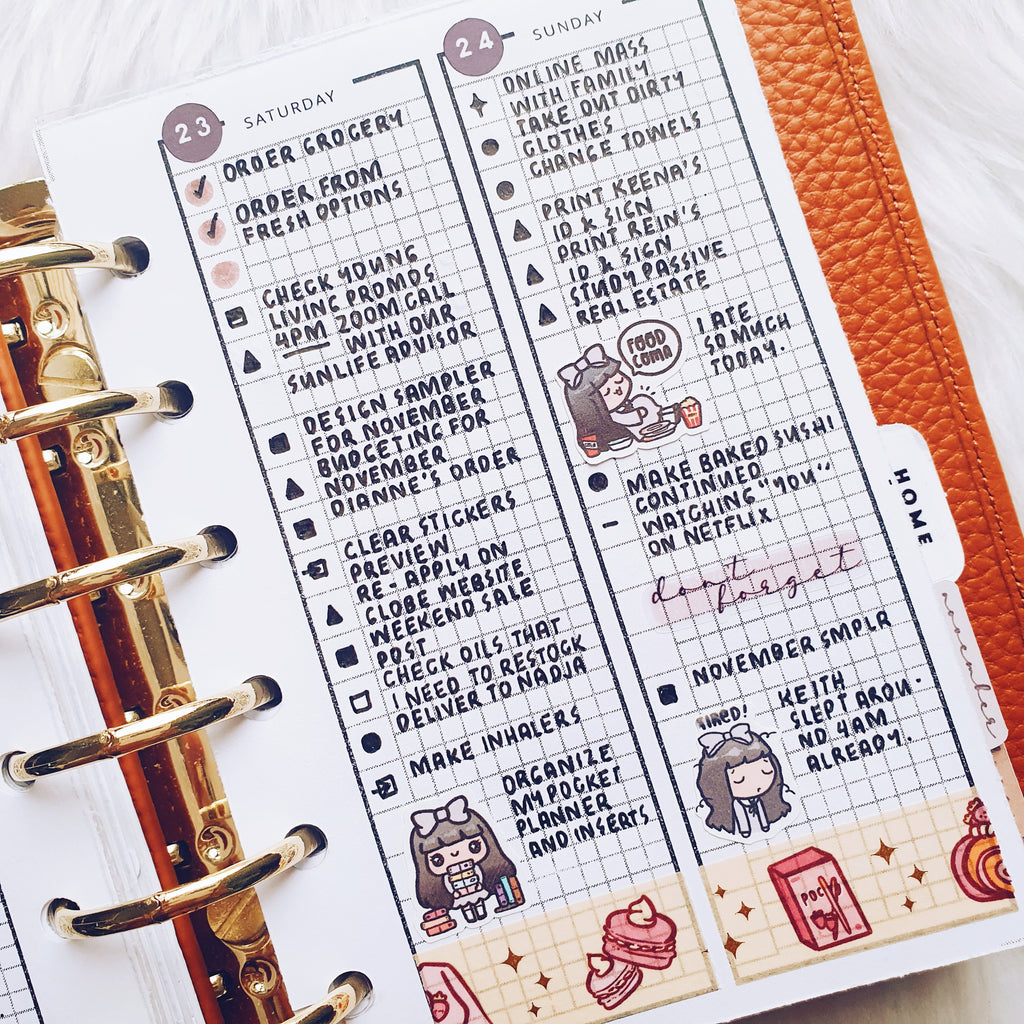 23 SATURDAY
ORDER GROCERY
ORDER FROM
FRESH OPTIONS
CHECK YOUNG
LIVING PROMOS
4PM ZOOM CALL
WITH OUR
SUNLIFE ADVISOR
DESIGN SAMPLER
FOR NOVEMBER
BUDGETING FOR
NOVEMBER
DIANNE'S ORDER
CLEAR STICKERS
PREVIEW
RE-APPLY ON
GLOBE WEBSITE
WEEKEND SALE
POST
CHECK OILS THAT
I NEED TO RESTOCK
DELIVER TO NADJA
MAKE INHALERS
ORGANIZE
MY POCKET
PLANNER
AND INSERTS
24 SUNDAY
ONLINE MASS
WITH FAMILY
TAKE OUT DIRTY
CLOTHES
CHANGE TOWELS
PRINT KEENA'S
ID X SIGN
PRINT REIN'S
ID & SIGN
STUDY PASSIVE
REAL ESTATE
FOOD
COMA
I ATE
SO MUCH
TODAY.
MAKE BAKED SUSHI
CONTINUED
WATCHING "YOU"
ON NETFLIX
don't
forget
NOVEMBER SMPLR
TIRED!
KEITH
SLEPT AROU-
ND 4AM
ALREADY.
POCKY
HOME
november